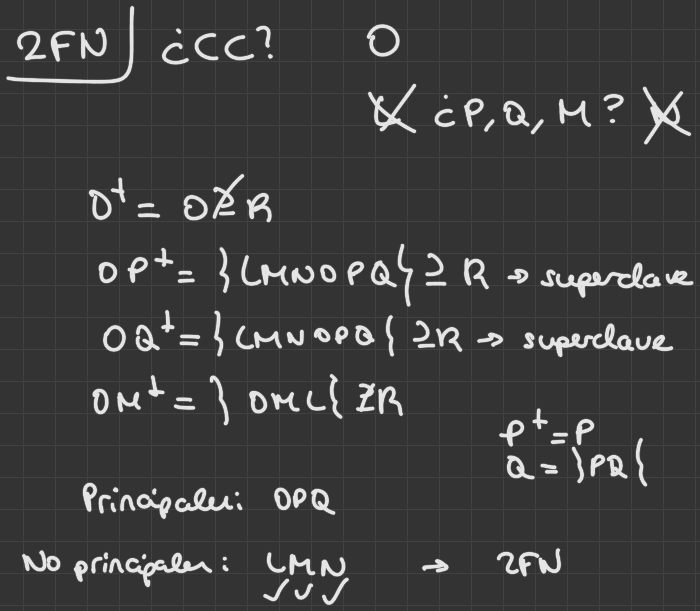 2FN ¿CC? O
L ¿P, Q, M? N
O⁺ = O ⊉ R
OP⁺ = }LMNOPQ{ ⊇ R → superclave
OQ⁺ = { LMNOPQ { ⊇ R → superclave
OM⁺ = } OML{ ⊉ R
P⁺ = P
Q = }PQ{
Principales: OPQ
No principales: LMN → 2FN
✓ ✓ ✓